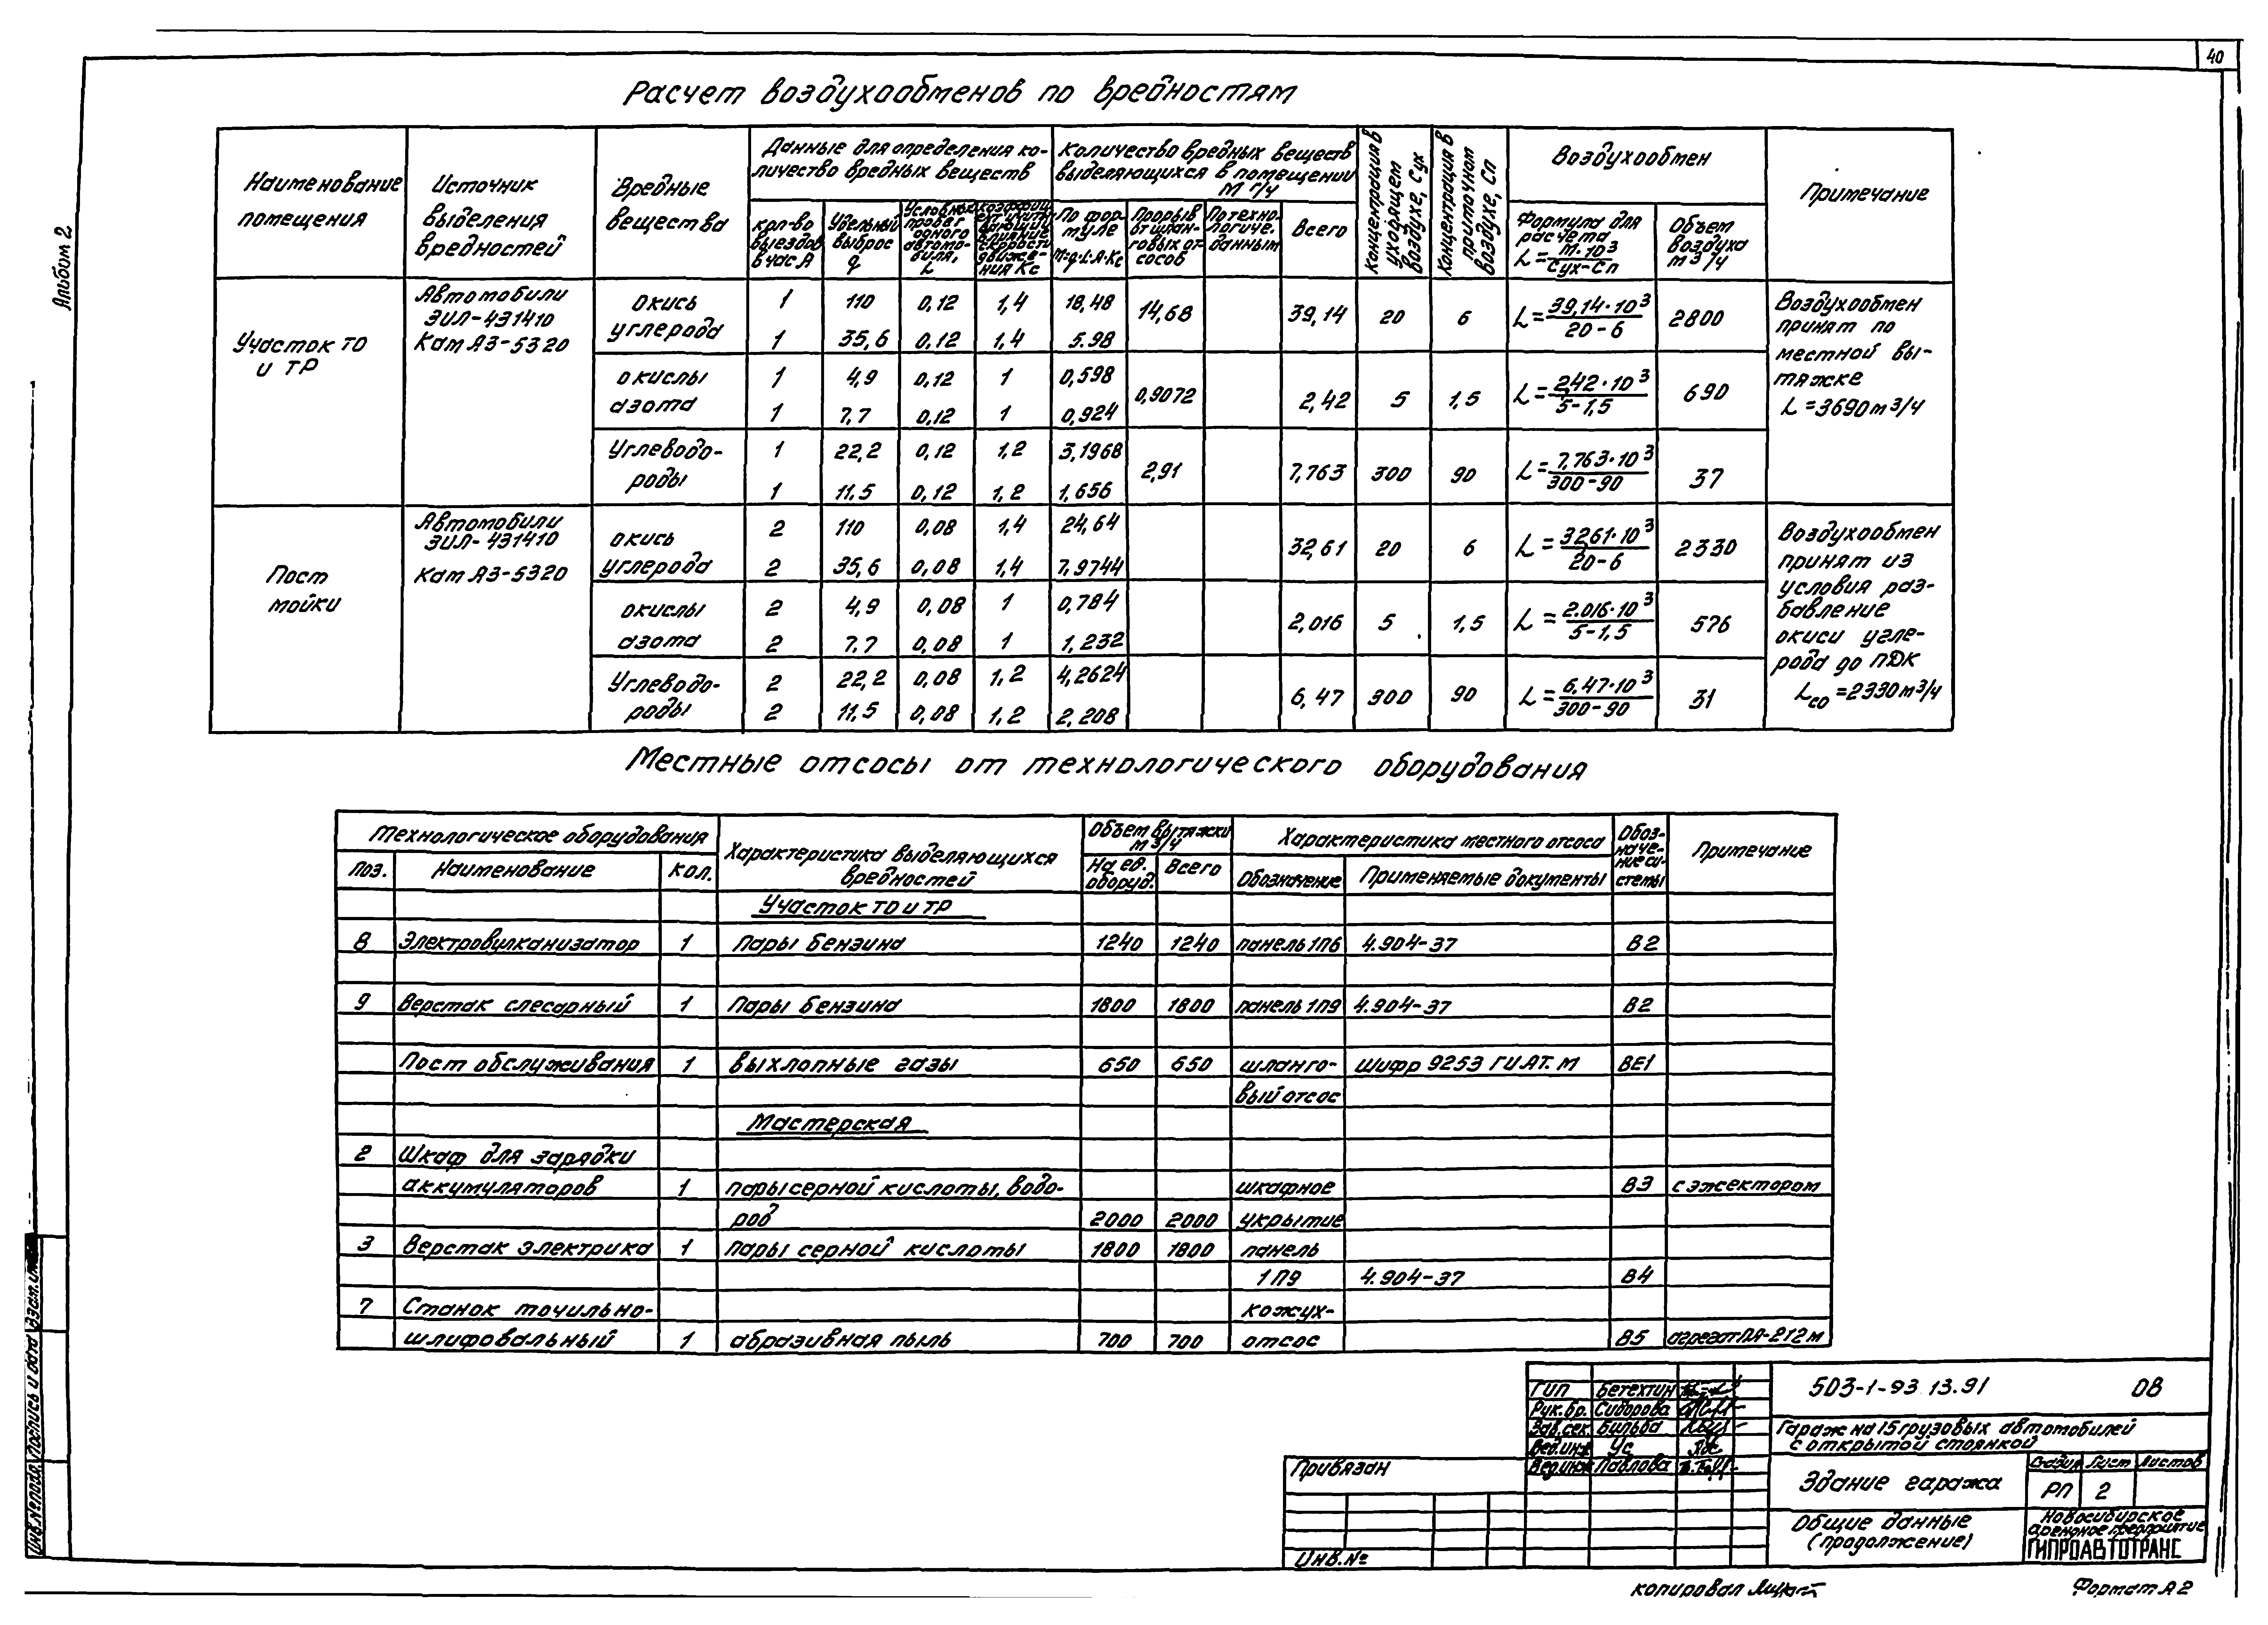 40
Альбом 2
Расчет воздухообменов по вредностям
Наименование помещения
Источник выделения вредностей
Вредные вещества
Данные для определения количество вредных веществ
кол-во выездов в час А
Удельный выброс q
Условный пробег одного автомобиля, L
коэффициент, учитывающий влияние скорости движения Кс
Количество вредных веществ выделяющихся в помещении М г/ч
По формуле М=q·L·А·Кс
Прорыв от шланговых отсосов
По технологиче. данным
Всего
Концентрация в уходящем воздухе, Сух
Концентрация в приточном воздухе, Сп
Воздухообмен
Формула для расчета L = М·10³/Сух-Сп
Объем воздуха м³/ч
Примечание
Участок ТО и ТР
Автомобили
ЗИЛ-431410
КамАЗ-5320
окись углерода
1 110 0,12 1,4 18,48
1 35,6 0,12 1,4 5.98
14,68 39,14 20 6 L=39,14·10³/20-6 2800
окислы азота
1 4,9 0,12 1 0,598
1 7,7 0,12 1 0,924
0,9072 2,42 5 1,5 L=242·10³/5-1,5 690
Углеводороды
1 22,2 0,12 1,2 3,1968
1 11,5 0,12 1,2 1,656
2,91 7,763 300 90 L=7,763·10³/300-90 37
Воздухообмен
принят по
местной вы-
тяжке
L=3690м³/ч
Пост мойки
Автомобили
ЗИЛ-431410
КамАЗ-5320
окись углерода
2 110 0,08 1,4 24,64
2 35,6 0,08 1,4 7,9744
32,61 20 6 L=3261·10³/20-6 2330
окислы азота
2 4,9 0,08 1 0,784
2 7,7 0,08 1 1,232
2,016 5 1,5 L=2.016·10³/5-1,5 576
Углеводороды
2 22,2 0,08 1,2 4,2624
2 11,5 0,08 1,2 2,208
6,47 300 90 L=6,47·10³/300-90 31
Воздухообмен
принят из
условия раз-
бавление
окиси угле-
рода до ПДК
Lсо=2330м³/ч
Местные отсосы от технологического оборудования
Технологическое оборудования
Поз. Наименование Кол.
Характеристика выделяющихся вредностей
Объем вытяжки м³/ч
На ед. оборуд. Всего
Характеристика местного отсоса
Обозначение Применяемые документы
Обозначение системы
Примечание
Участок ТО и ТР
8 Электровулканизатор 1 Пары бензина 1240 1240 панель 1П6 4.904-37 В2
9 Верстак слесарный 1 Пары бензина 1800 1800 панель 1П9 4.904-37 В2
Пост обслуживания 1 выхлопные газы 650 650 шланго- Шифр 9253 ГИАТ. М ВЕ1
вый отсос
Мастерская
2 Шкаф для зарядки
аккумуляторов 1 пары серной кислоты, водо- шкафное В3 с эжектором
род 2000 2000 укрытие
3 Верстак электрика 1 пары серной кислоты 1800 1800 панель
1П9 4.904-37 В4
7 Станок точильно- кожух-
шлифовальный 1 абразивная пыль 700 700 отсос В5 агрегат ПА-212м
ГИП Бетехтин
Рук.бр. Сидорова
Зав.сек. Бильба
Вед.инж Ус
Вед.инж Павлова
503-1-93.13.91 ОВ
Гараж на 15 грузовых автомобилей
с открытой стоянкой
Здание гаража
Стадия Лист Листов
РП 2
Общие данные
(продолжение)
Новосибирское
арендное предприятие
ГИПРОАВТОТРАНС
Привязан
Инв.№
Инв.№подл. Подпись и дата Взам.инв
копировал
Формат А2